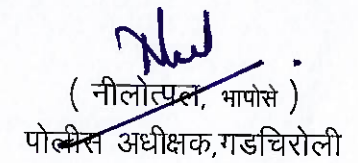 ( नीलोत्पल, भापोसे )
पोलीस अधीक्षक,गडचिरोली